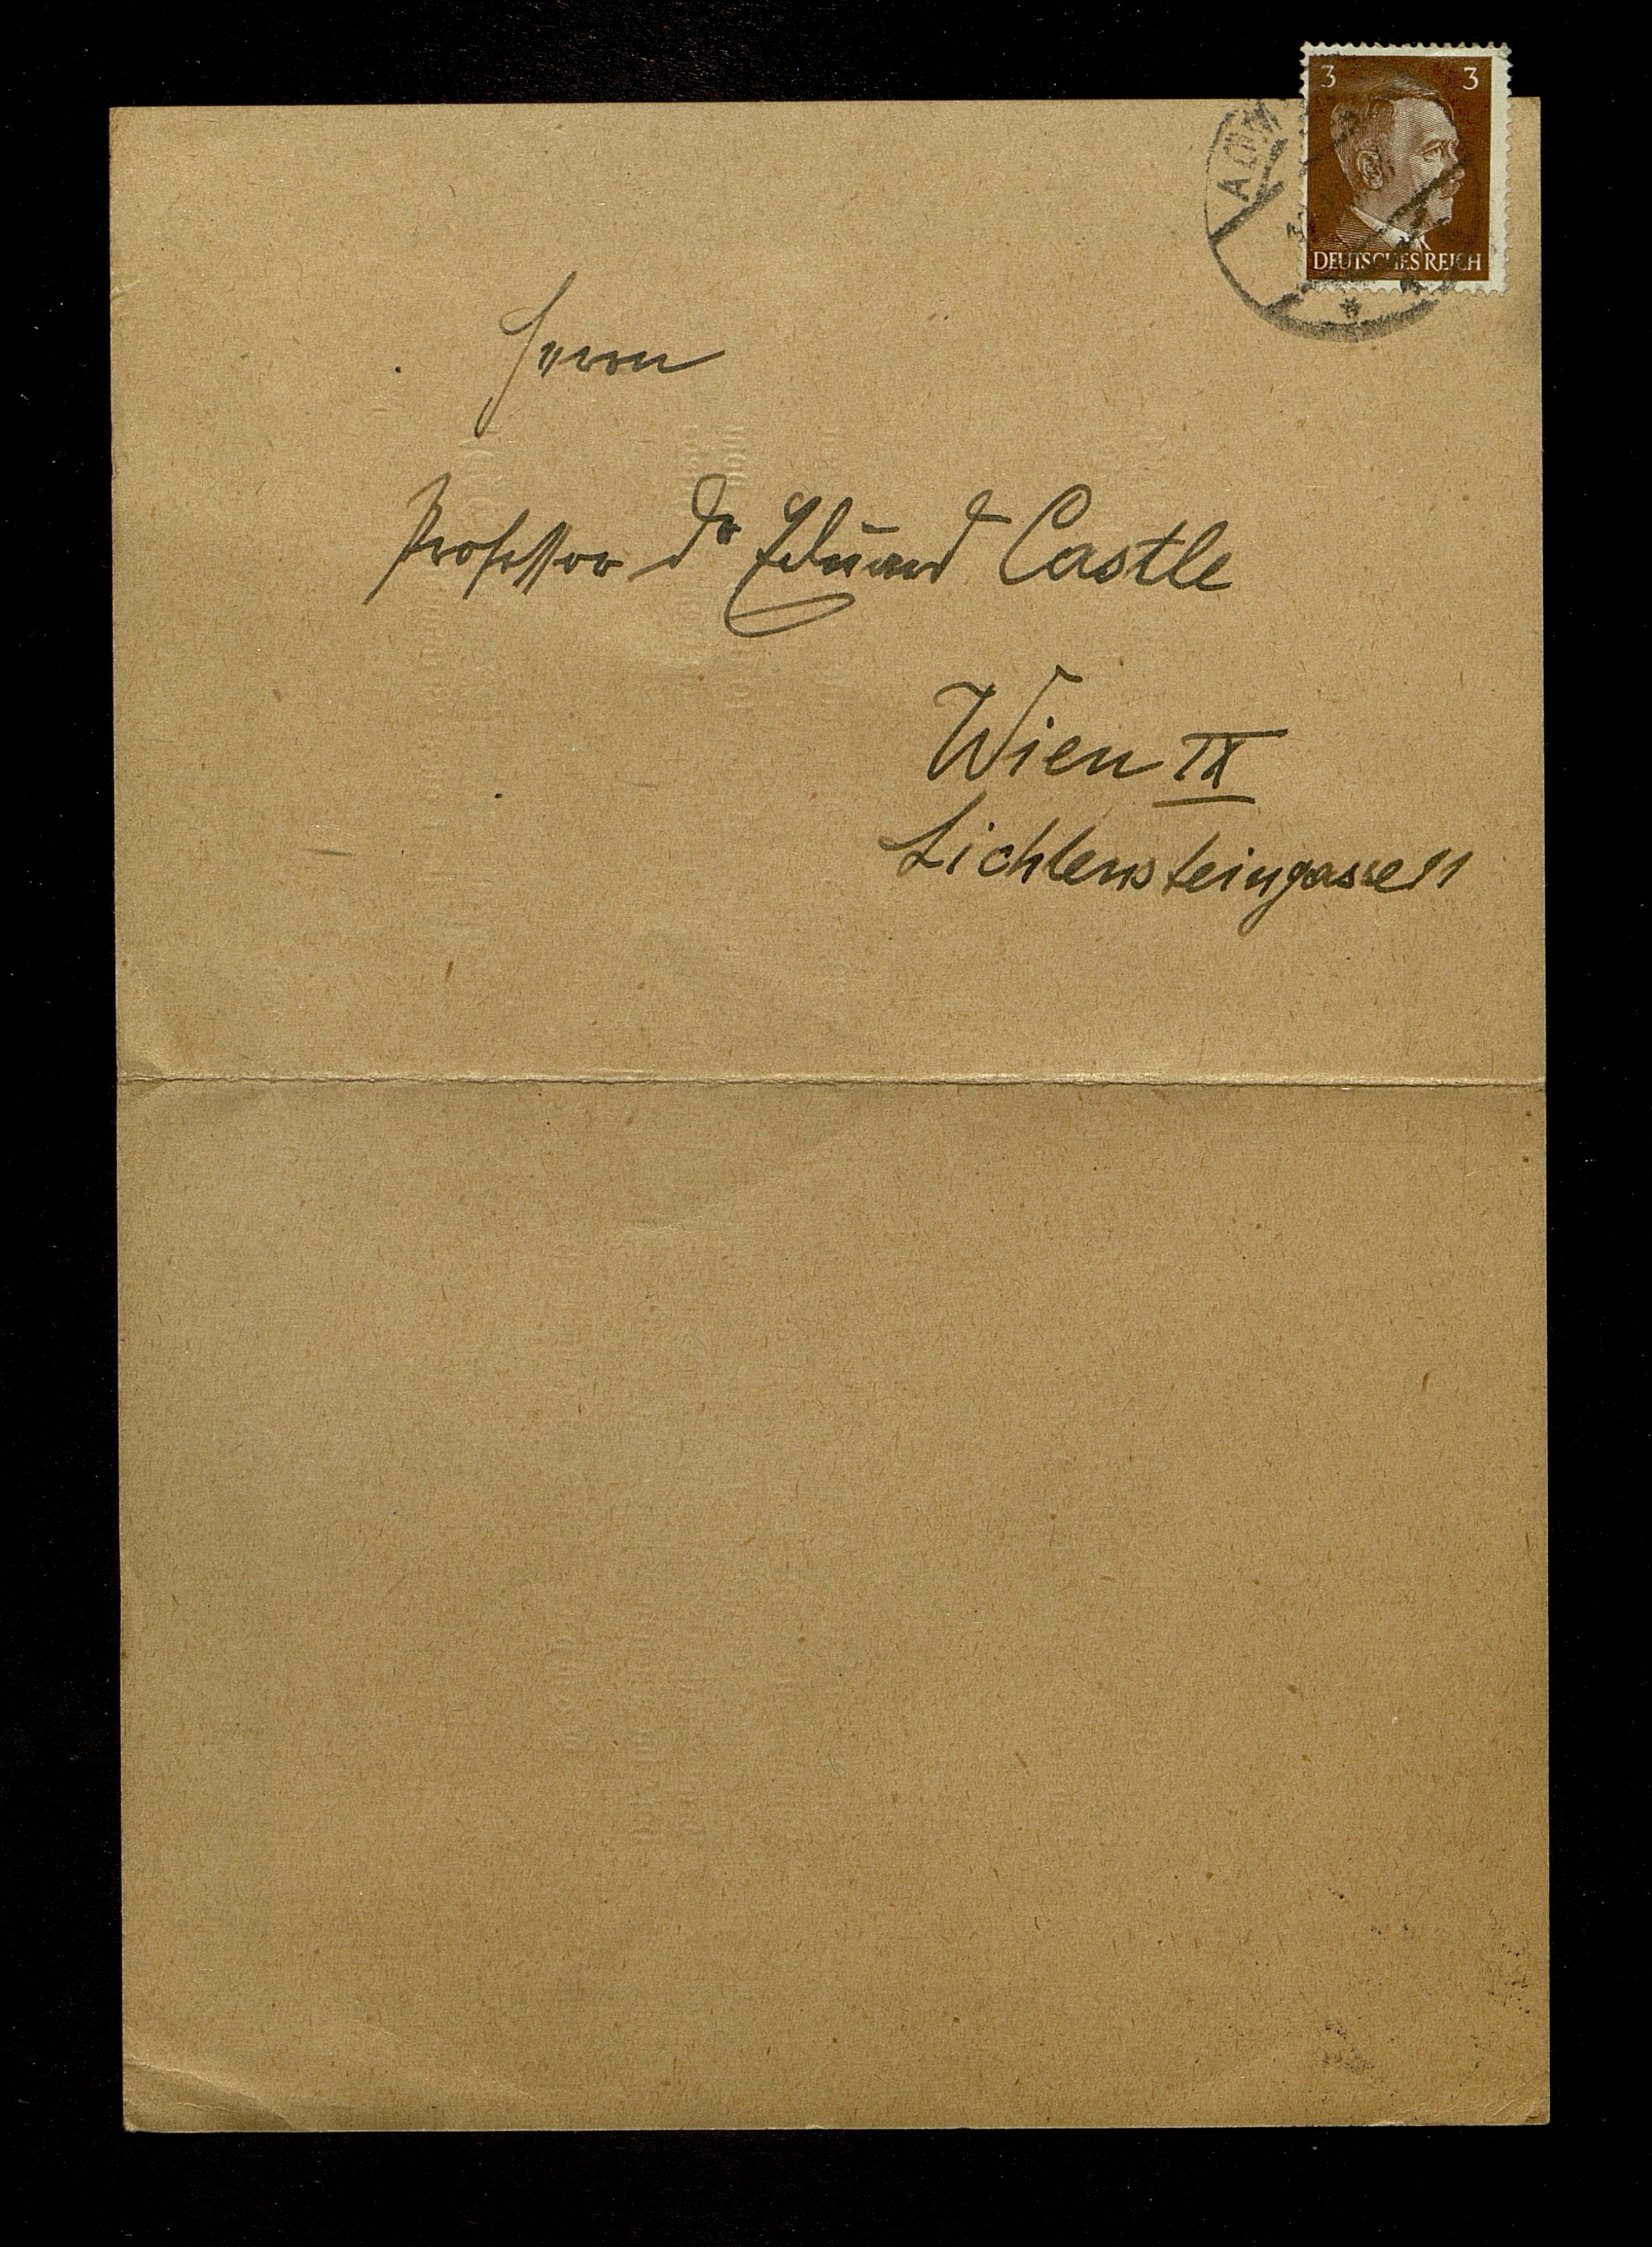 3 3
DEUTSCHES REICH
Herrn
Professor Dr Eduard Castle
Wien IX
Lichtensteingasse